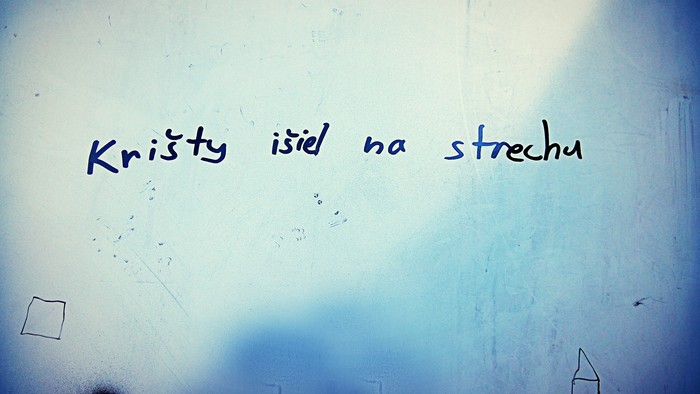 Krišty išiel na strechu